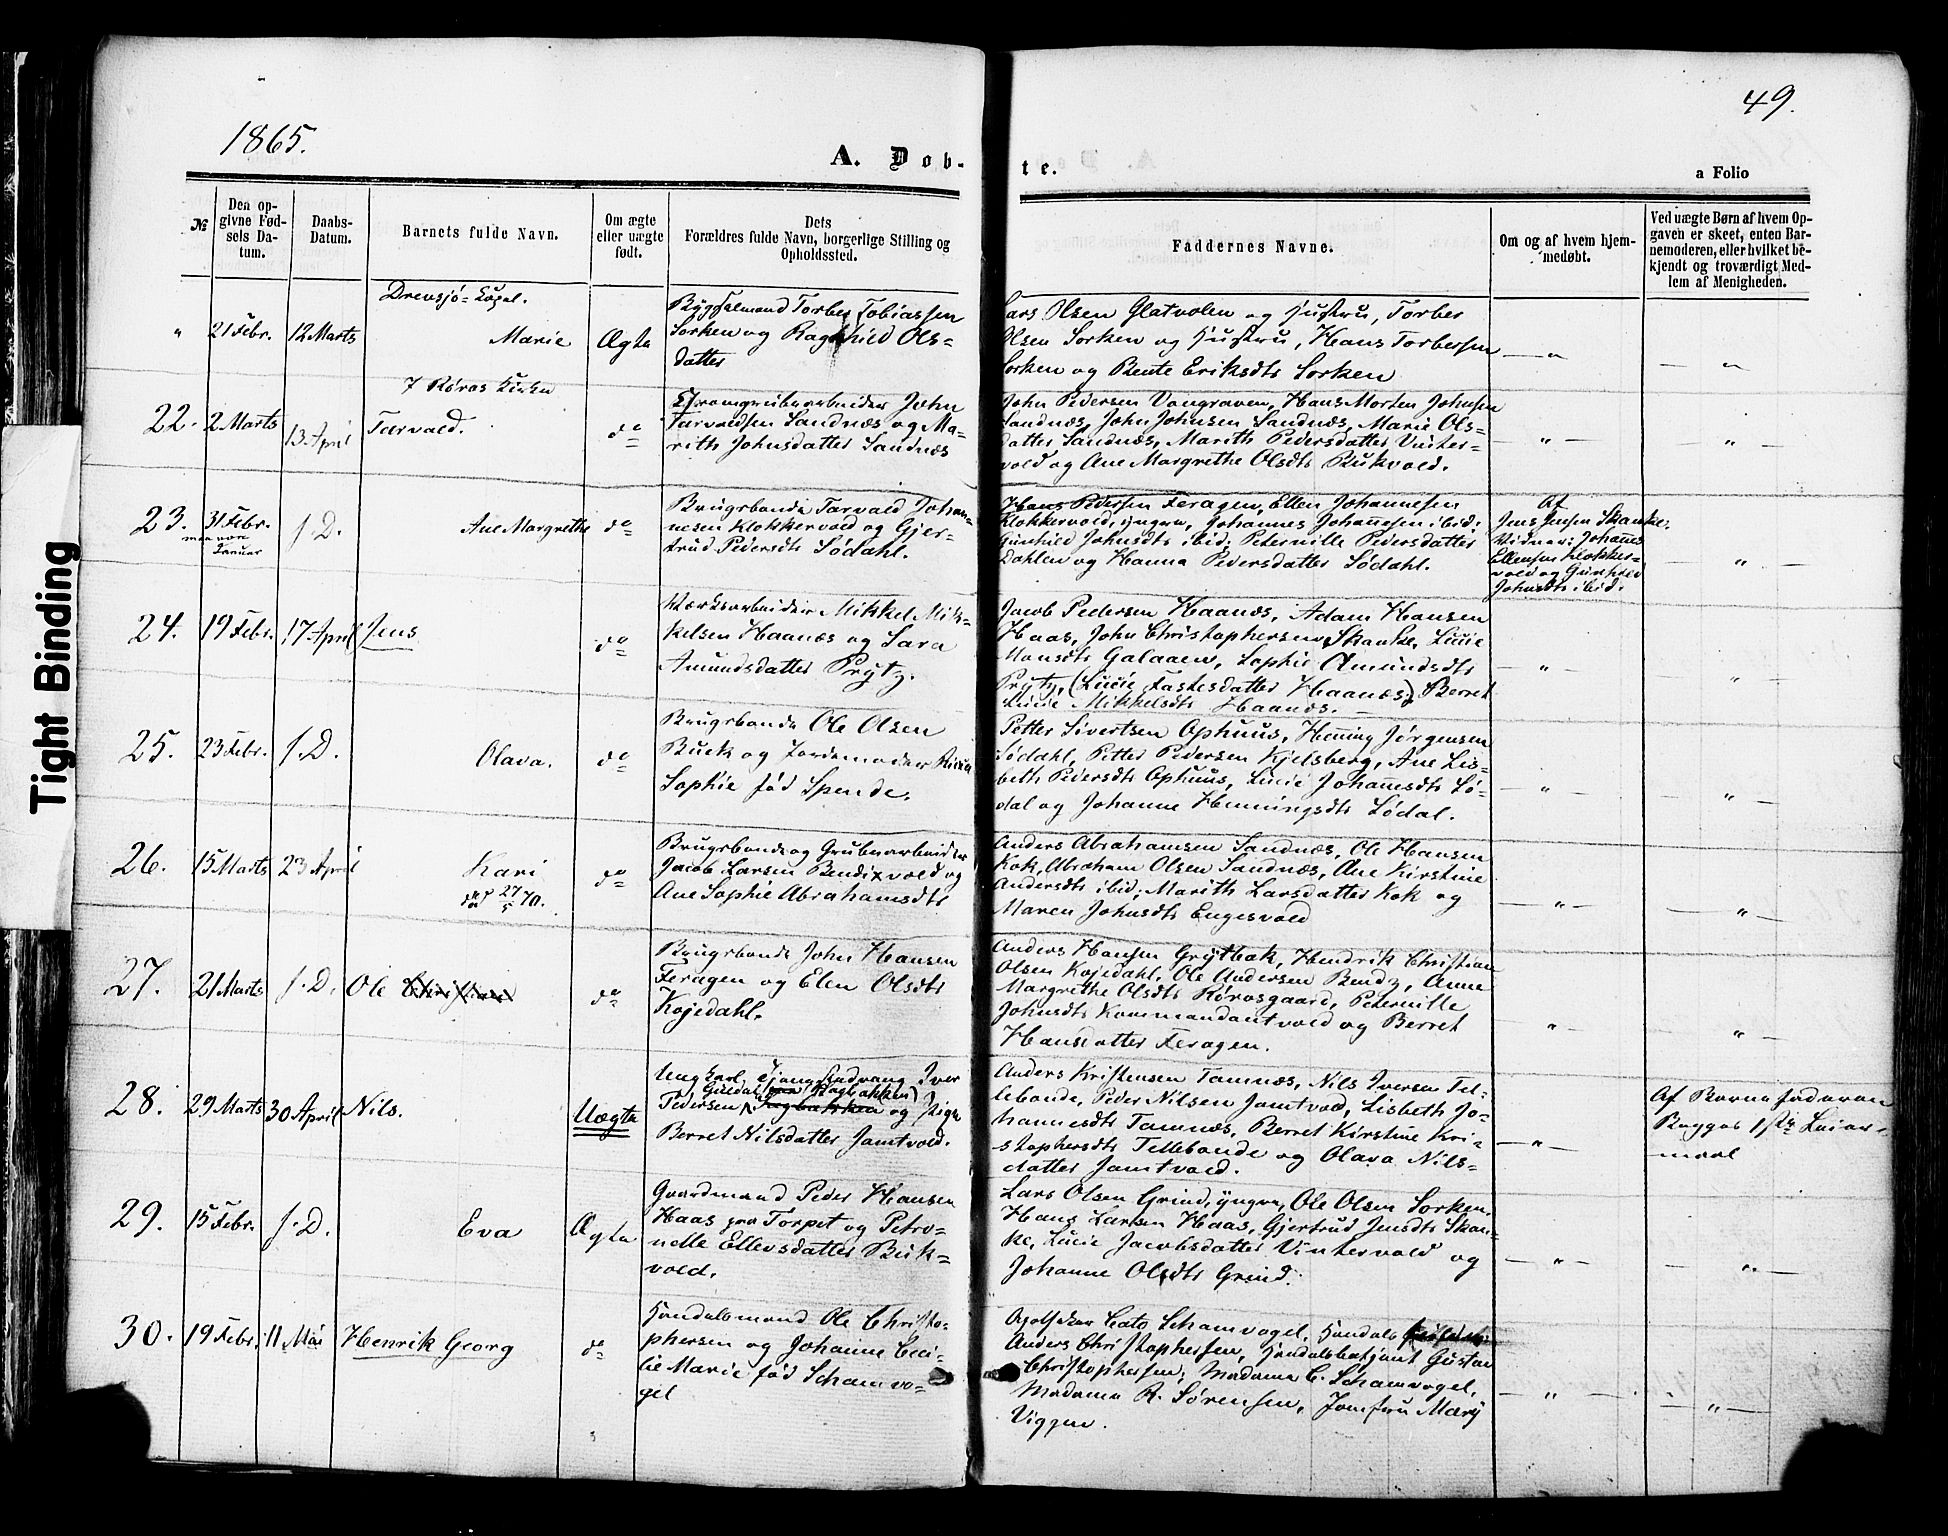 1865.
49.
A. Døb-
te.
a Folio
№
Den op-
givne Fød-
sels Da-
tum.
Daabs-
Datum.
Barnets fulde Navn.
Om ægte
eller uægte
født.
Dets
Forældres fulde Navn, borgerlige Stilling og
Opholdssted.
Faddernes Navne.
Om og af hvem hjem-
medøbt.
Ved uægte Børn af hvem Op-
gaven er skeet, enten Bar-
nemoderen, eller hvilket be-
kjendt og troværdigt Med-
lem af Menigheden.
" 21 Febr. 12 Marts
Marie
Ægte
Bygselmand Torber Tobiassen
Sorken og Ragnhild Ols-
datter
Lars Olsen Glatvolen og Hustru, Torber
Olsen Sorken og Hustru, Hans Torbersen
Sorken og Bente Eriksdtr Sorken
— " —
— " —
I Røros Kirke
22. 2 Marts 13 April Tarvald.
do
John
Tarvaldsen Sandnæs og Ma-
rith Johnsdatter Sandnæs
John Pedersen Vongraven, Hans Morten Johnsen
Sandnæs, John Johnsen Sandnæs, Marie Ols-
datter Sandnæs, Marith Pedersdatter Vinter-
vold og Ane Margrethe Olsdtr Bukvold.
— " —
— " —
23. 31 Febr. s. D.
Januar
Ane Margrethe
do
Brugsbonde Tarvald Johan-
nesen Klokkervold og Gjer-
trud Pedersdtr Sødahl.
Hans Pedersen Feragen, Ellen Johannesen
Klokkervold, yngre, Johannes Johannesen ibid;
Gunhild Johnsdtr ibid; Peternille Pedersdatter
Dahlen og Hanna Pedersdatter Sødahl.
Af
Jens Jensen Skanke.
Vidner: Johannes
Ellensen Klokker-
vold og Gunhild
Johnsdtr ibid.
— " —
24. 19 Febr. 17 April Jens
do
Værksarbeider Mikkel Mik-
kelsen Haanæs og Sara
Amundsdatter Prytz.
Jacob Pedersen Haanæs, Adam Hansen
Haas, John Christophersen Skanke, Lucie
Monsdtr Galaaen, Sophie Amundsdtr
Prytz, (Lucie Fastesdatter Haanæs,) Berret
Lucie Mikkelsdtr Haanæs.
— " —
— " —
25. 23 Febr. s. D.
Olava.
do
Brugsbonde Ole Olsen
Buck og Jordemoder
Sophie fød Spende.
Petter Sivertsen Ophuus, Henning Jørgensen
Sødahl, Petter Pedersen Kjelsberg, Ane Lis-
beth Pedersdtr Ophuus, Lucie Johannesdtr Sø-
dal og Johanne Henningsdtr Sødal.
— " —
— " —
26. 15 Marts 23 April
Kari
død 27/5 70.
do
Brugsbonde og Grubearbeider
Jacob Larsen Bendixvold og
Ane Sophie Abrahamsdtr
Anders Abrahamsen Sandnæs, Ole Hansen
Kok, Abraham Olsen Sandnæs, Ane Kirstine
Andersdtr ibid; Marith Larsdatter Kok og
Maren Johnsdtr Engesvold
— " —
— " —
27. 21 Marts s. D. Ole Christian
do
Brugsbonde John Hansen
Feragen og Elen Olsdtr
Kojedahl.
Anders Hansen Grytbak, Hendrik Christian
Olsen Kojedahl, Ole Andersen Bendz, Anne
Margrethe Olsdtr Rørosgaard, Peternille
Johnsdtr Kommandantvold og Berret
Hansdatter Feragen.
— " —
— " —
28. 29 Marts 30 April Nils.
Uægte
Ungkarl Iver
Pedersen og Pige
Berret Nilsdatter Jamtvold.
Anders Kristensen Tamnæs, Nils Iversen Tel-
lebonde, Peder Nilsen Jamtvold, Lisbeth Jo-
hannesdtr Tamnæs, Berret Kirstine Kri-
stophersdtr Tellebonde og Olava Nils-
datter Jamtvold.
— " —
Af Barnefaderen
Begges 1ste Leier-
maal
29. 15 Febr. s. D.
Eva
Ægte
Gaardmand Peder Hansen
Haas paa Torpet og Petro-
nelle Ellevsdatter Buk-
vold.
Lars Olsen Grind, yngre, Ole Olsen Sorken,
Hans Larsen Haas, Gjertrud Jensdtr Skan-
ke, Lucie Jacobsdatter Vintervold og
Johanne Olsdtr Grind.
— " —
— " —
30. 19 Febr. 11 Mai Henrik Georg
do
Handelsmand Ole Christo-
phersen og Johanne Ceci-
lie Marie fød Schamvo-
gel
Cato Schamvogel, Handels
Anders Christophersen, Handelsbetjent Gustav
Christophersen; Madame C. Schamvogel,
Madame R. Sørensen, Jomfru Mary
Viggen.
— " —
— " —
Tight Binding